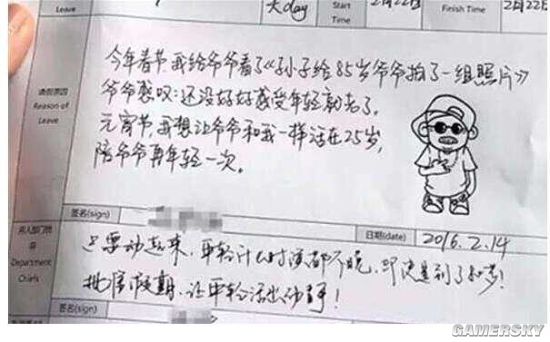 Leave
天day
Start
Time
2月22日
Finish Time
2月22
请假原因
Reason of
Leave
今年春节,我给爷爷看了《孙子给85岁爷爷拍了一组照片》
爷爷感叹:还没好好感受年轻就老了。
元宵节,我想让爷爷和我一样活在25岁,
陪爷爷再年轻一次。
签名(sign)
日期(date)
2016.2.14
Department
Chiefs
只要动起来,年轻什么时候都不晚,即使是到了80岁!
批准假期,让年轻活出动静!
签名(sign)
GAMERSKY